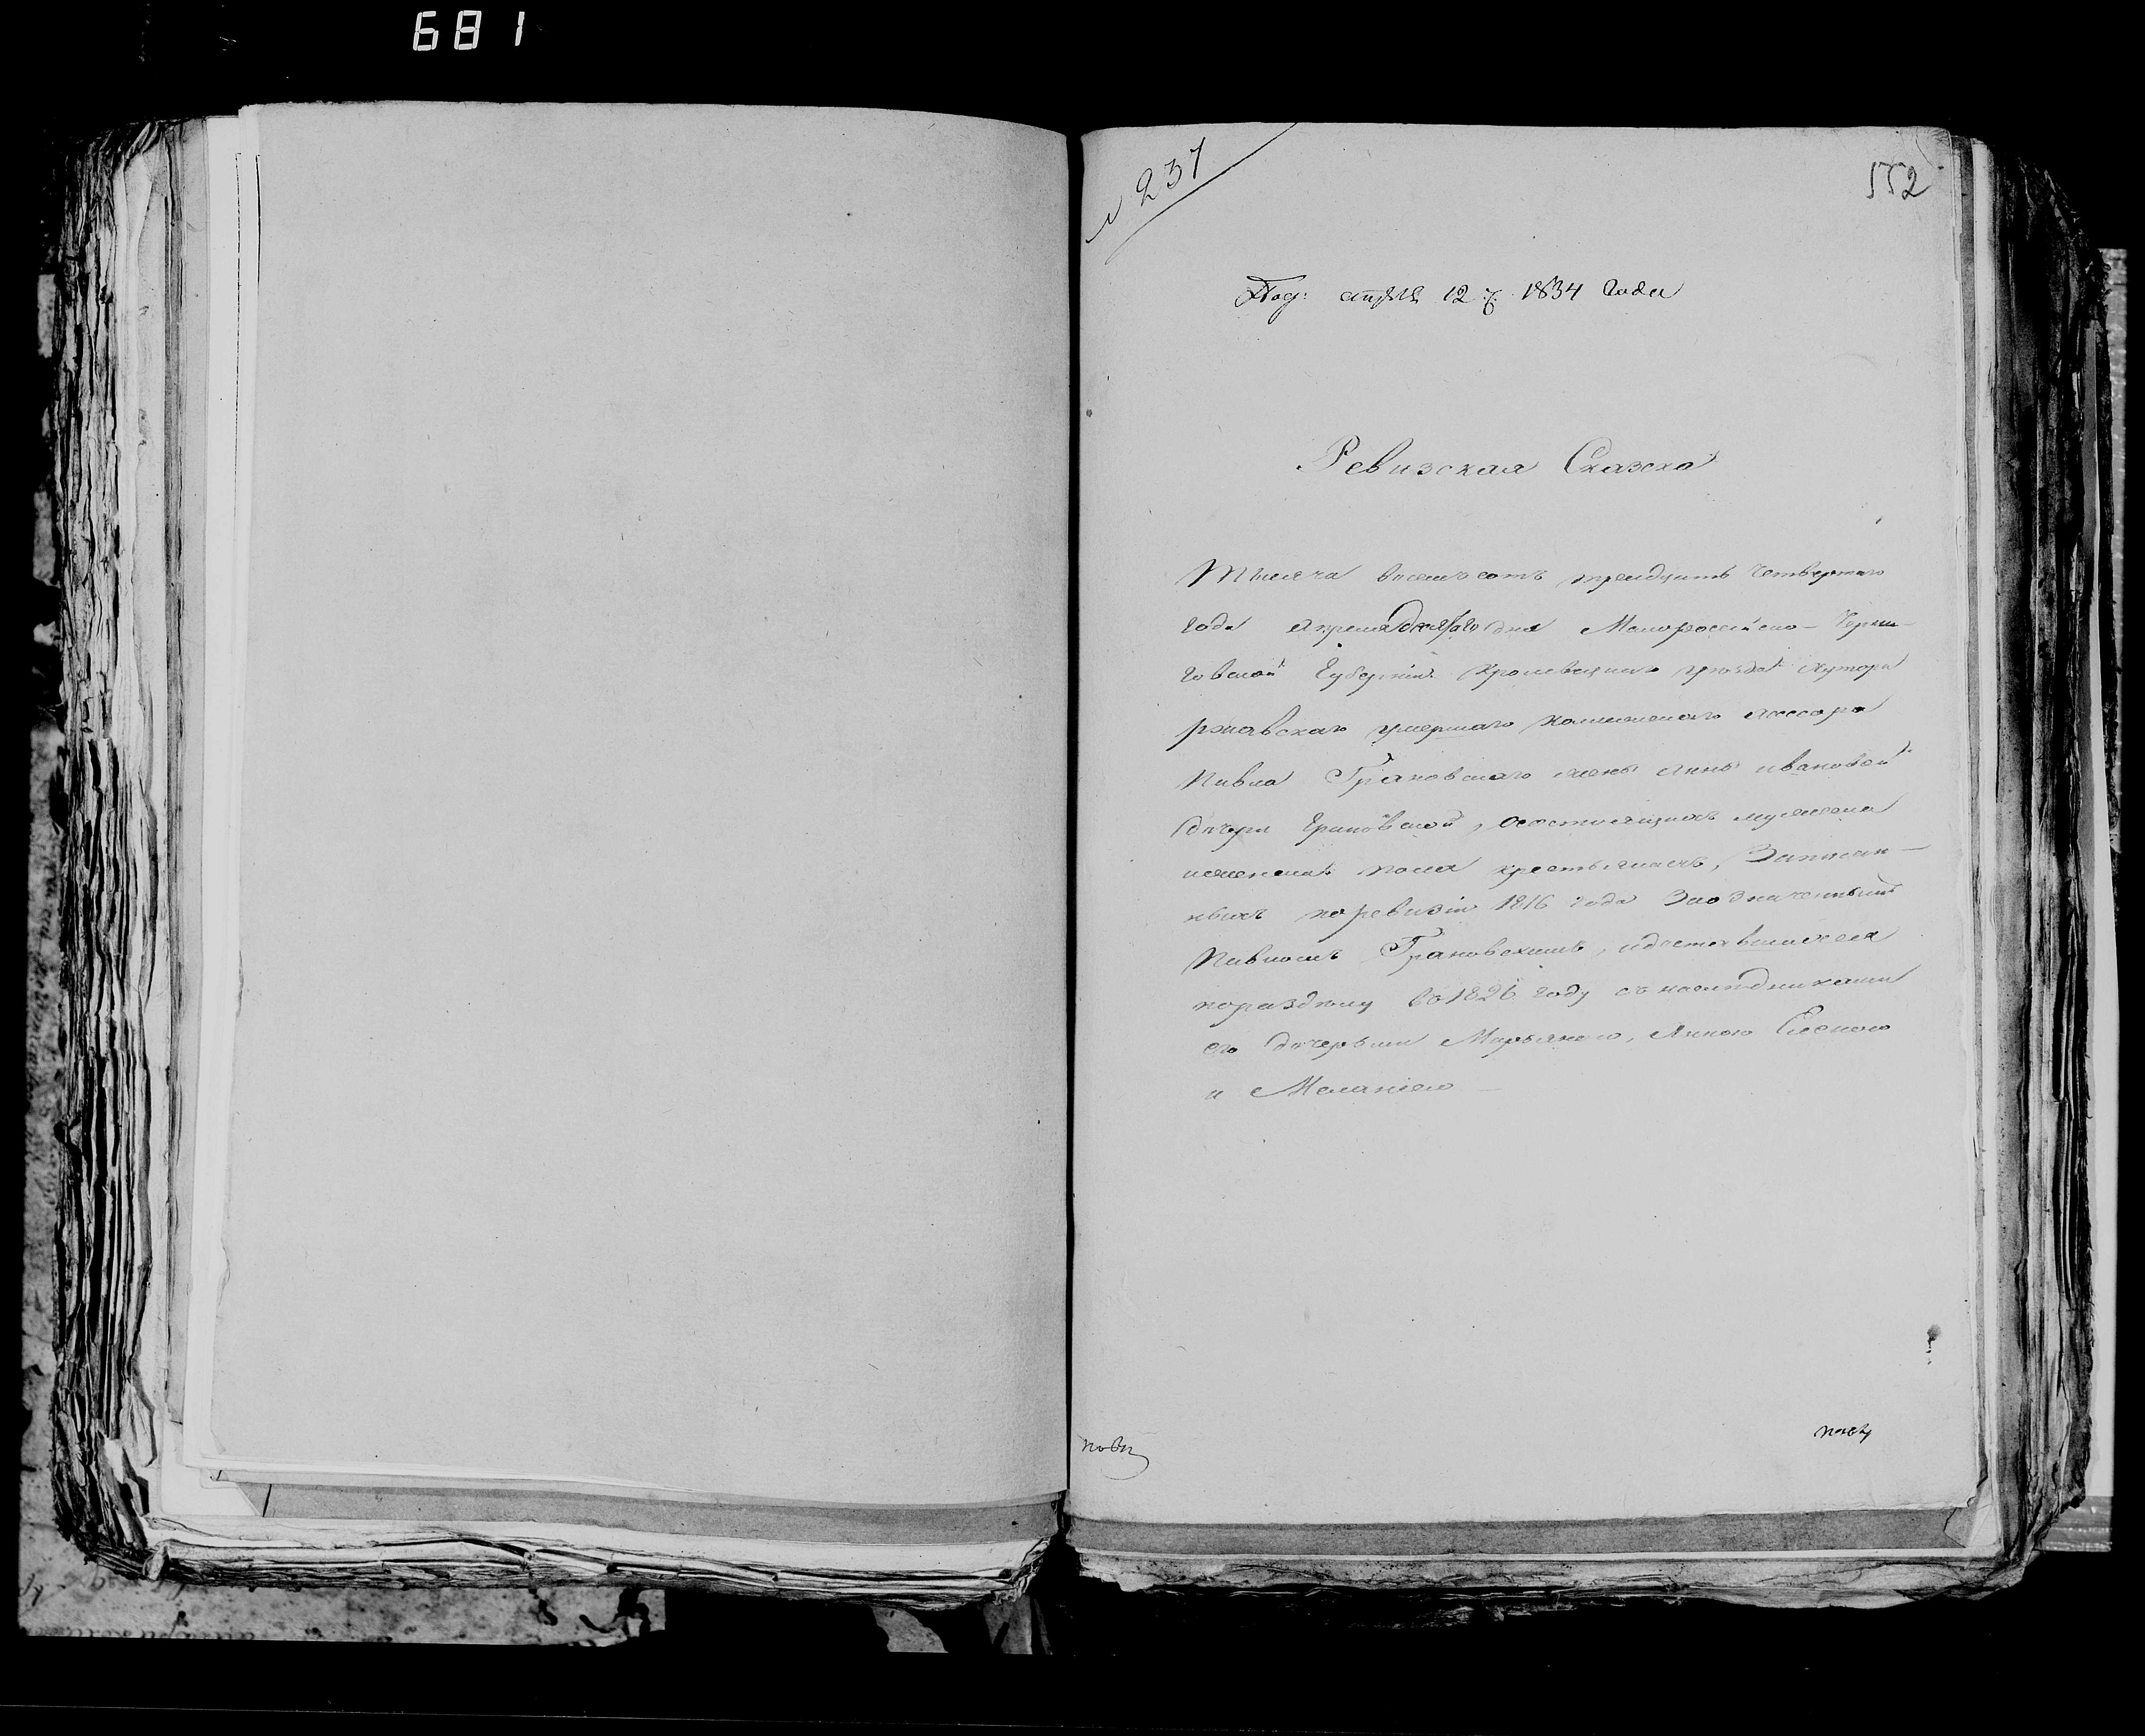 681
№ 237
552
Под: апрѣля 12 ч. 1834 года
Ревизская Сказка
Тысяча восемъ сотъ тридцать четвертаго
года апреля дня Малороссійско- Черни-
говской Губерніи Кролевецкаго уѣзда хутора
ржавскаго умершаго коллежскаго асессора
Павла Грановскаго жены анны ивановой
дочери Грановской, о состоящихъ мужеска
и женска пола крестьянахъ, Записан-
ныхъ по ревизіи 1816 года За означеннымъ
Павломъ Грановскимъ, и доставшихся
по раздѣлу въ 1826 году съ наслѣдниками
его дочерьми Марьяною, Анною Еленою
и Меланіею